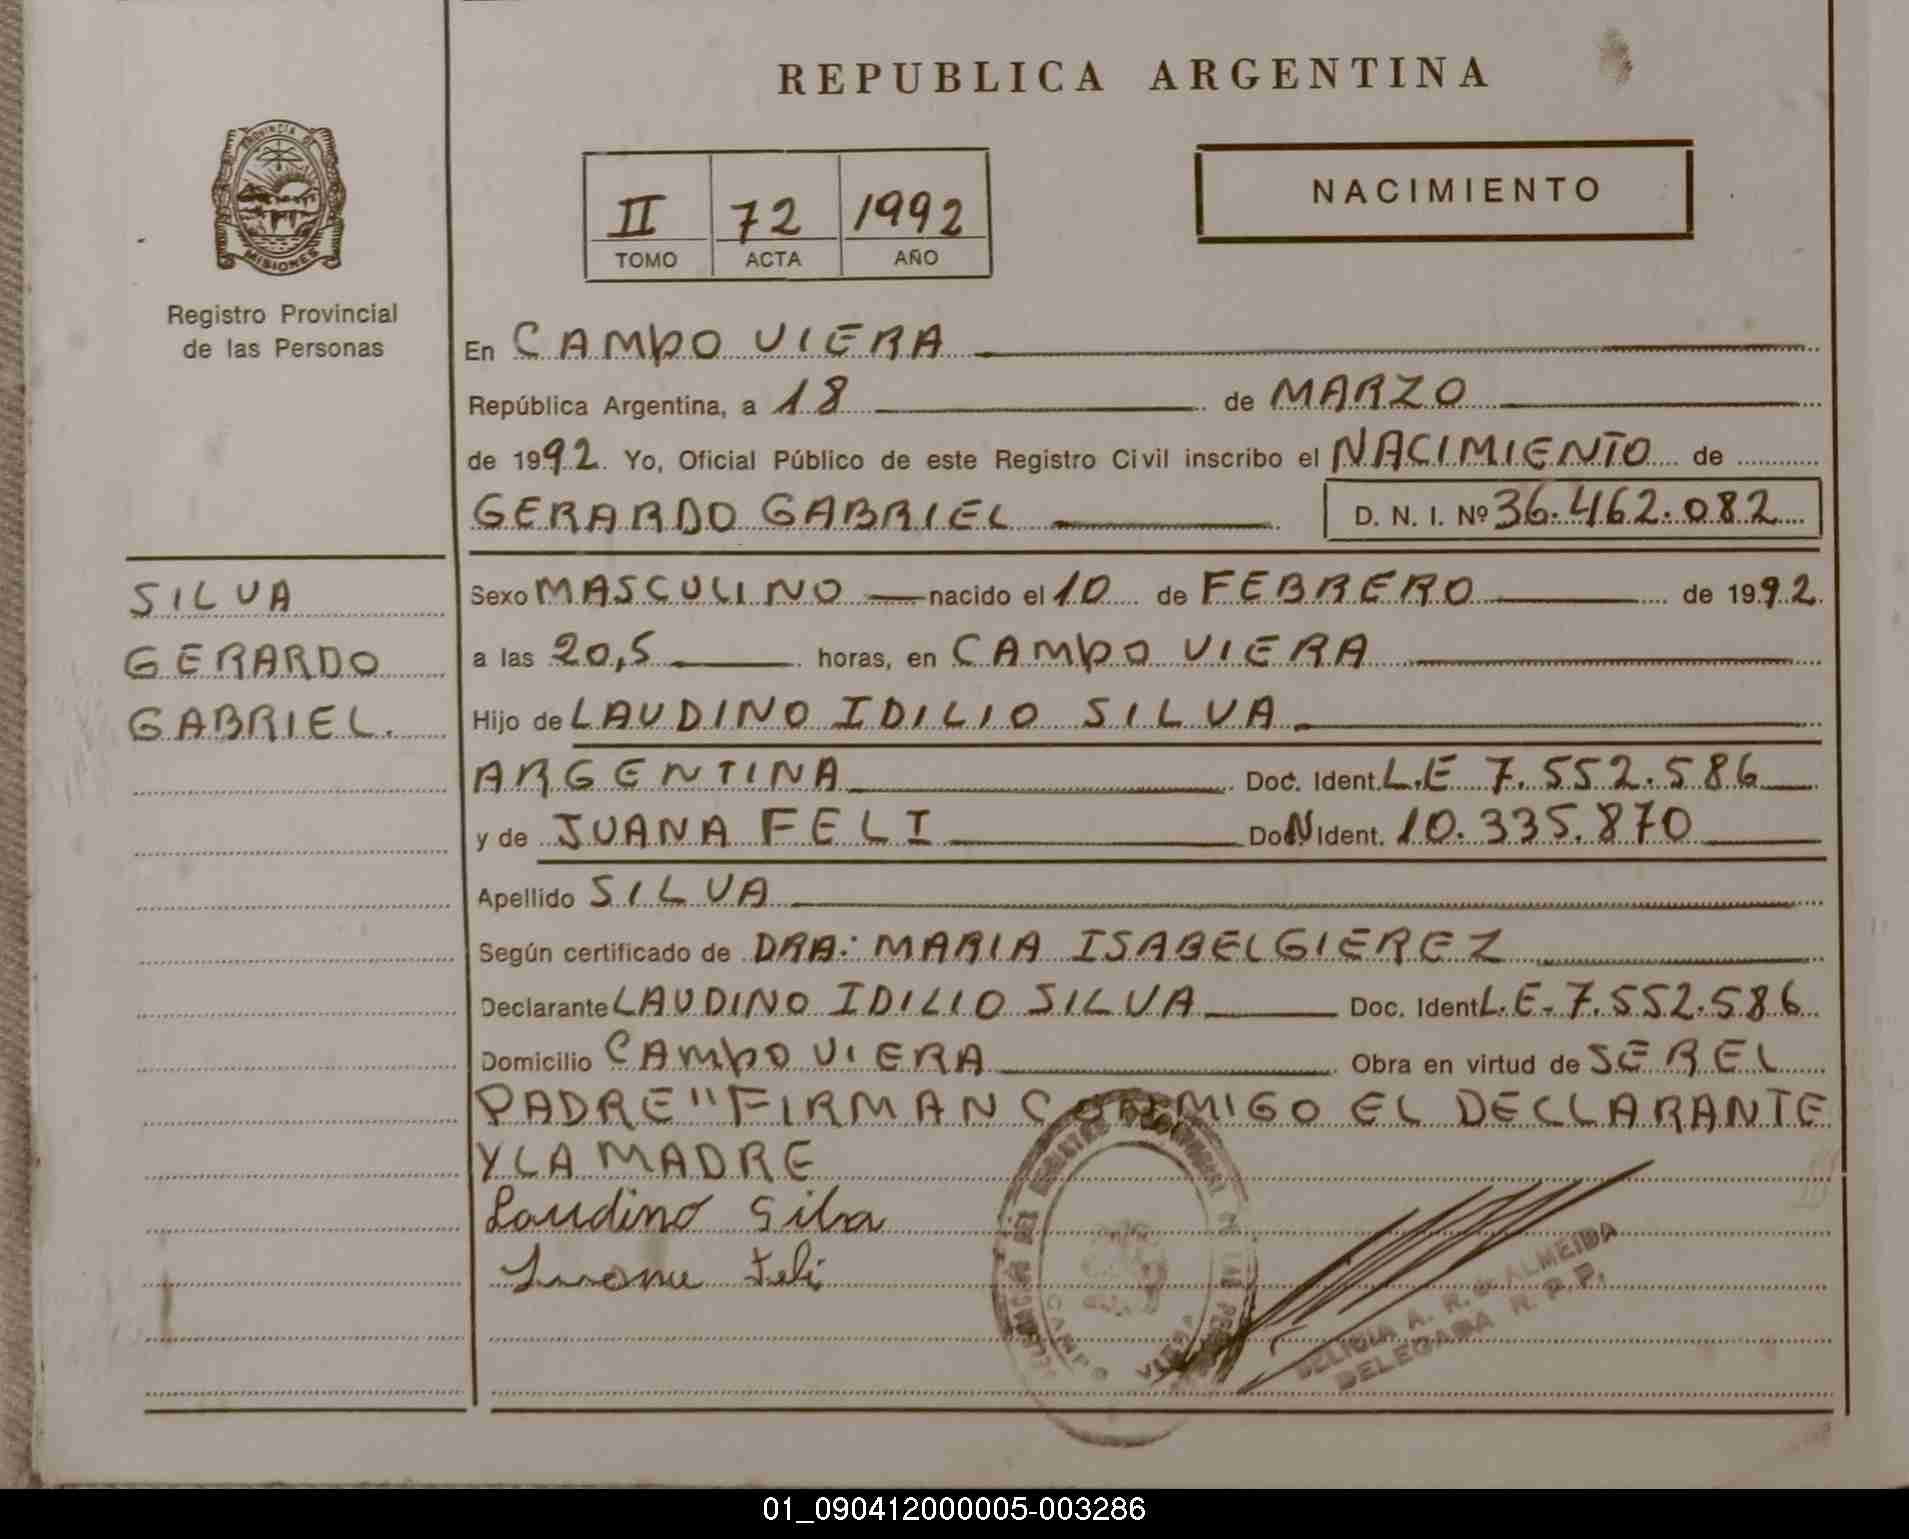 REPUBLICA ARGENTINA
PROVINCIA DE
MISIONES
Registro Provincial
de las Personas
II 72 1992
TOMO ACTA AÑO
NACIMIENTO
En CAMPO VIERA
República Argentina, a 18 de MARZO
de 1992. Yo, Oficial Público de este Registro Civil inscribo el NACIMIENTO de
GERARDO GABRIEL D. N. I. Nº 36.462.082
SILVA
GERARDO
GABRIEL.
Sexo MASCULINO nacido el 10 de FEBRERO de 1992.
a las 20,5 horas, en CAMPO VIERA
Hijo de LAUDINO IDILIO SILVA
ARGENTINA Doc. Ident. L.E 7.552.586
y de JUANA FELI DoN Ident. 10.335.870
Apellido SILVA
Según certificado de DRA: MARIA ISABEL GIEREZ
Declarante LAUDINO IDILIO SILVA Doc. Ident L.E. 7.552.586
Domicilio CAMPO VIERA Obra en virtud de SER EL
PADRE" FIRMAN CONMIGO EL DECLARANTE
Y LA MADRE
Laudino Silva
Feli
CAMPO VIERA
DELICIA A. R. de ALMEIDA
DELEGADA R. P. P.
01_090412000005-003286